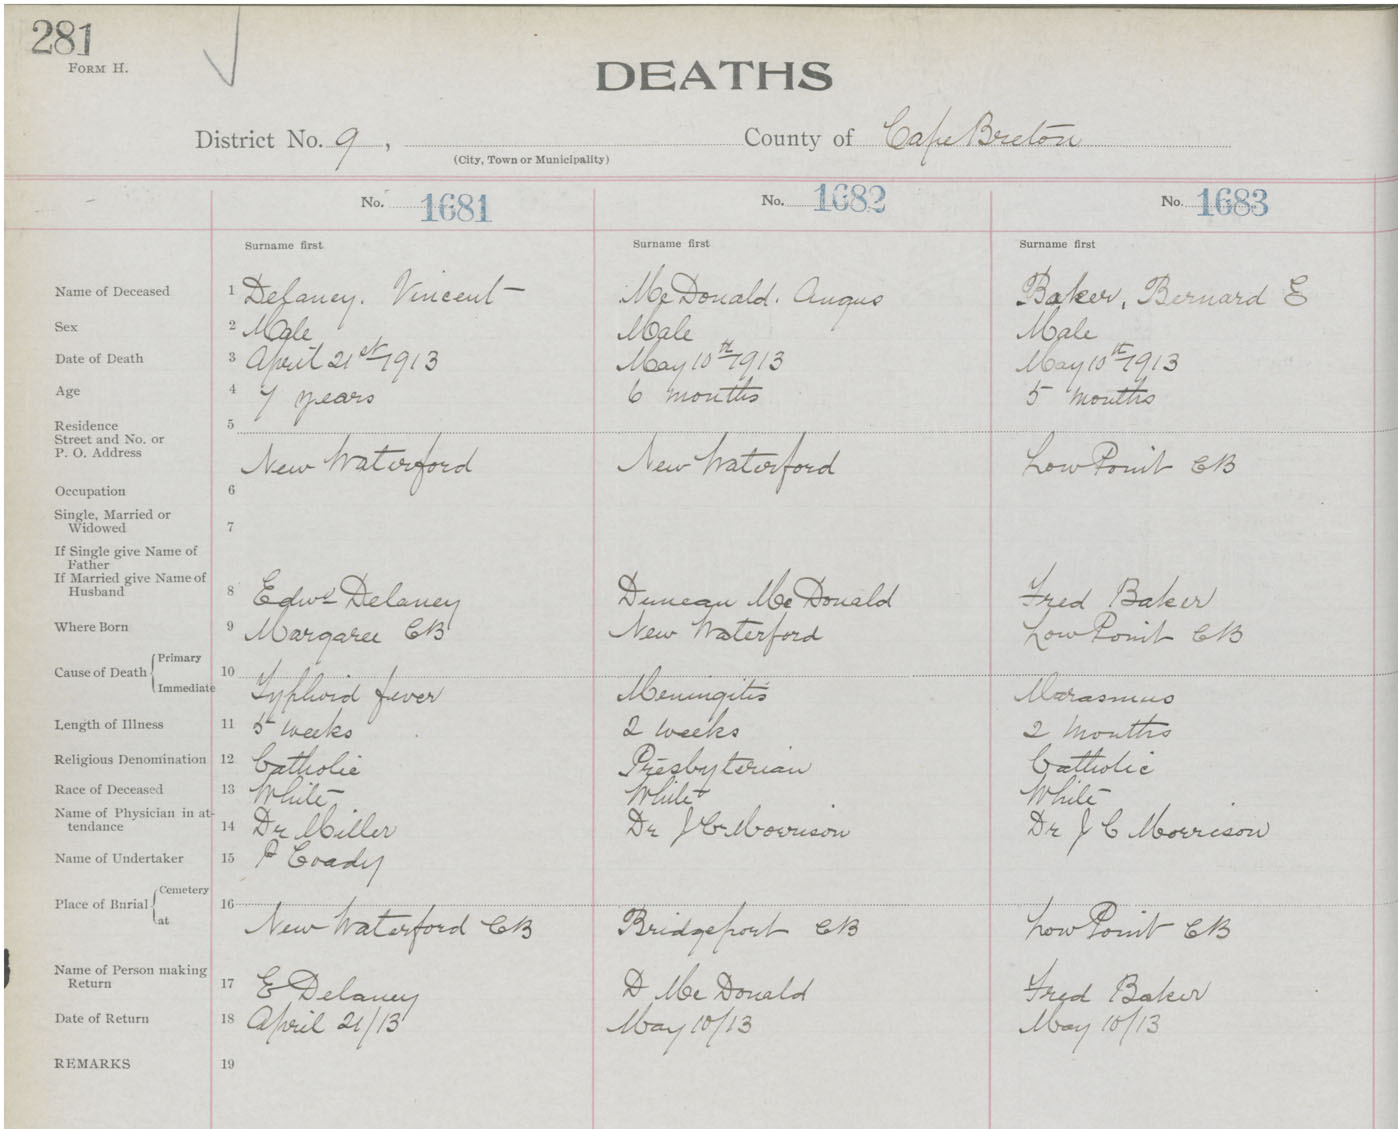 281
FORM H.
DEATHS
District No. 9, County of Cape Breton
(City, Town or Municipality)
No. 1681 No. 1682 No. 1683
Surname first Surname first Surname first
Name of Deceased 1 Delaney. Vincent McDonald. Angus Baker, Bernard E
Sex 2 Male Male Male
Date of Death 3 April 21st 1913 May 10th 1913 May 10th 1913
Age 4 7 years 6 months 5 months
Residence 5
Street and No. or
P. O. Address New Waterford New Waterford Low Point CB
Occupation 6
Single, Married or
Widowed 7
If Single give Name of
Father
If Married give Name of
Husband 8 Edwd Delaney Duncan McDonald Fred Baker
Where Born 9 Margaree CB New Waterford Low Point CB
Cause of Death { Primary 10
Immediate Typhoid fever Meningitis Marasmus
Length of Illness 11 5 weeks 2 weeks 2 months
Religious Denomination 12 Catholic Presbyterian Catholic
Race of Deceased 13 White White White
Name of Physician in at-
tendance 14 Dr Miller Dr J C Morrison Dr J C Morrison
Name of Undertaker 15 P Coady
Place of Burial { Cemetery 16
at New Waterford CB Bridgeport CB Low Point CB
Name of Person making
Return 17 E Delaney D McDonald Fred Baker
Date of Return 18 April 21/13 May 10/13 May 10/13
REMARKS 19